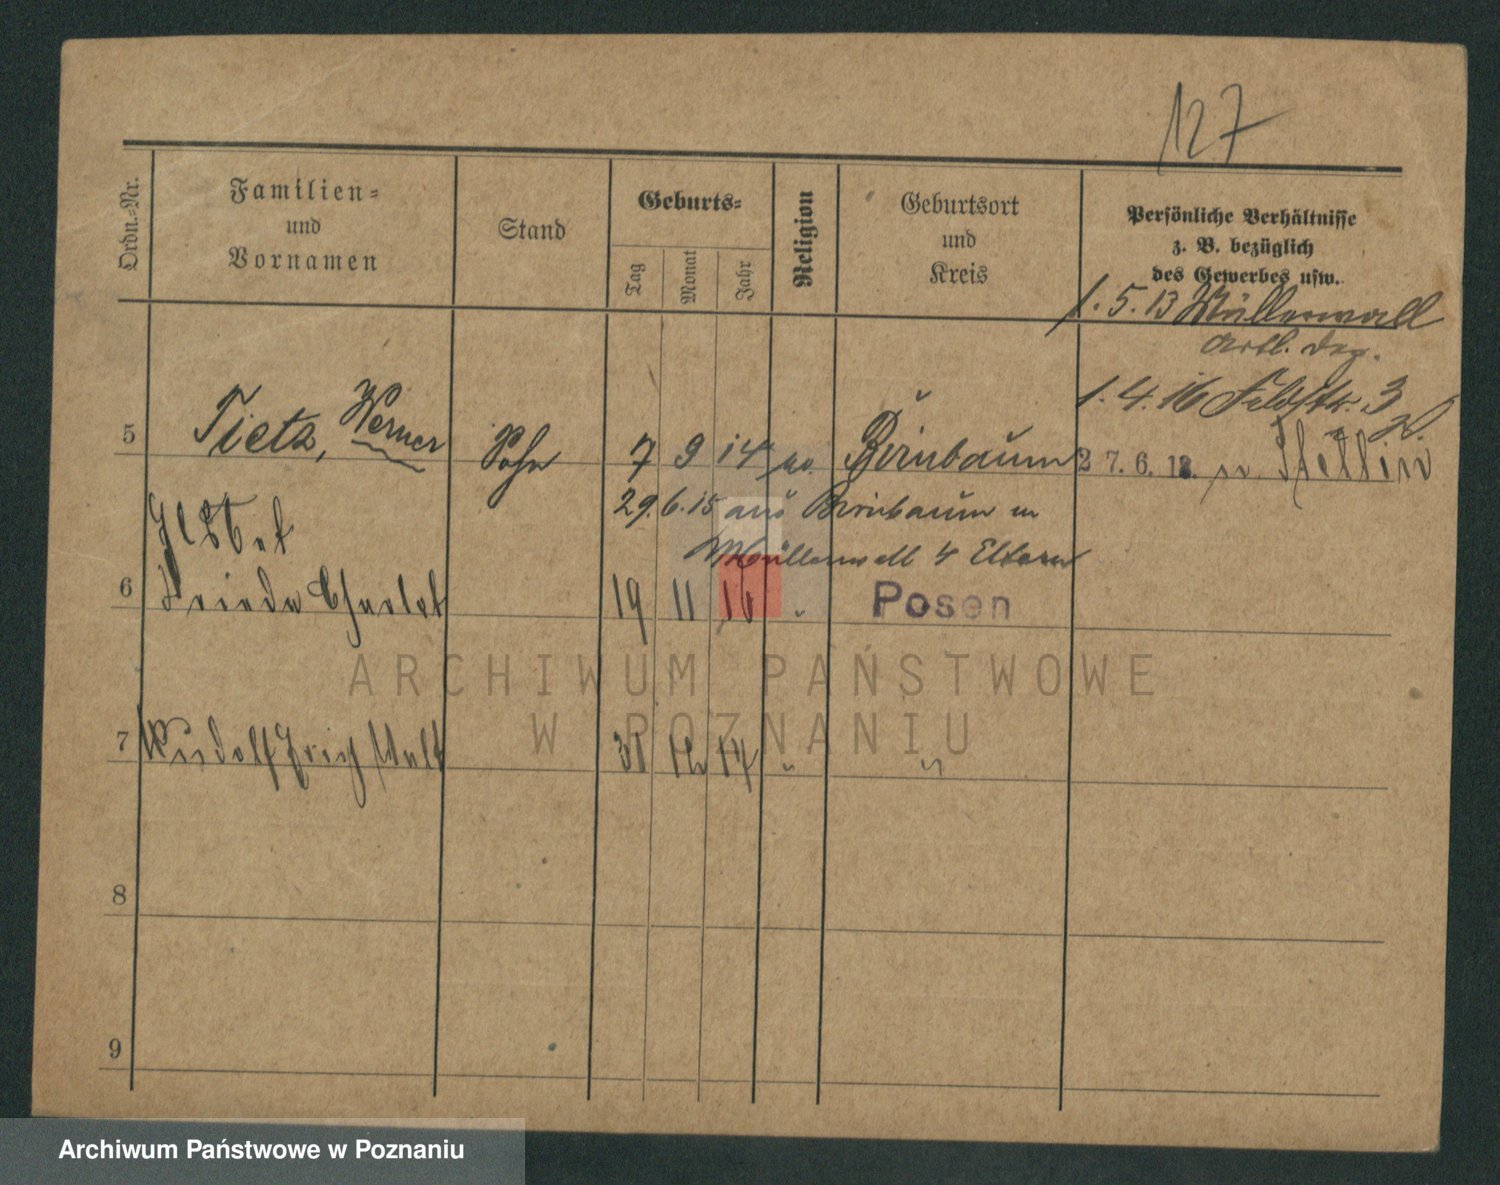 127
Ordn.-Nr.
Familien-
und
Vornamen
Stand
Geburts-
Tag
Monat
Jahr
Religion
Geburtsort
und
Kreis
Persönliche Verhältnisse
z. B. bezüglich
des Gewerbes usw.
1. 5. 13 Müllerwall
1. 4. 16 Feldstr. 3
5 Tietz, Werner Sohn 7 9 14 Birnbaum 27. 6. 18. n. Stettin
29. 6. 15 aus Birnbaum n
Müllerwall 4 Eltern
6 Frieda 19 11 16 " Posen
7 Rudolf Erich 31 12 14 " "
8
9
ARCHIWUM PAŃSTWOWE
W POZNANIU
Archiwum Państwowe w Poznaniu